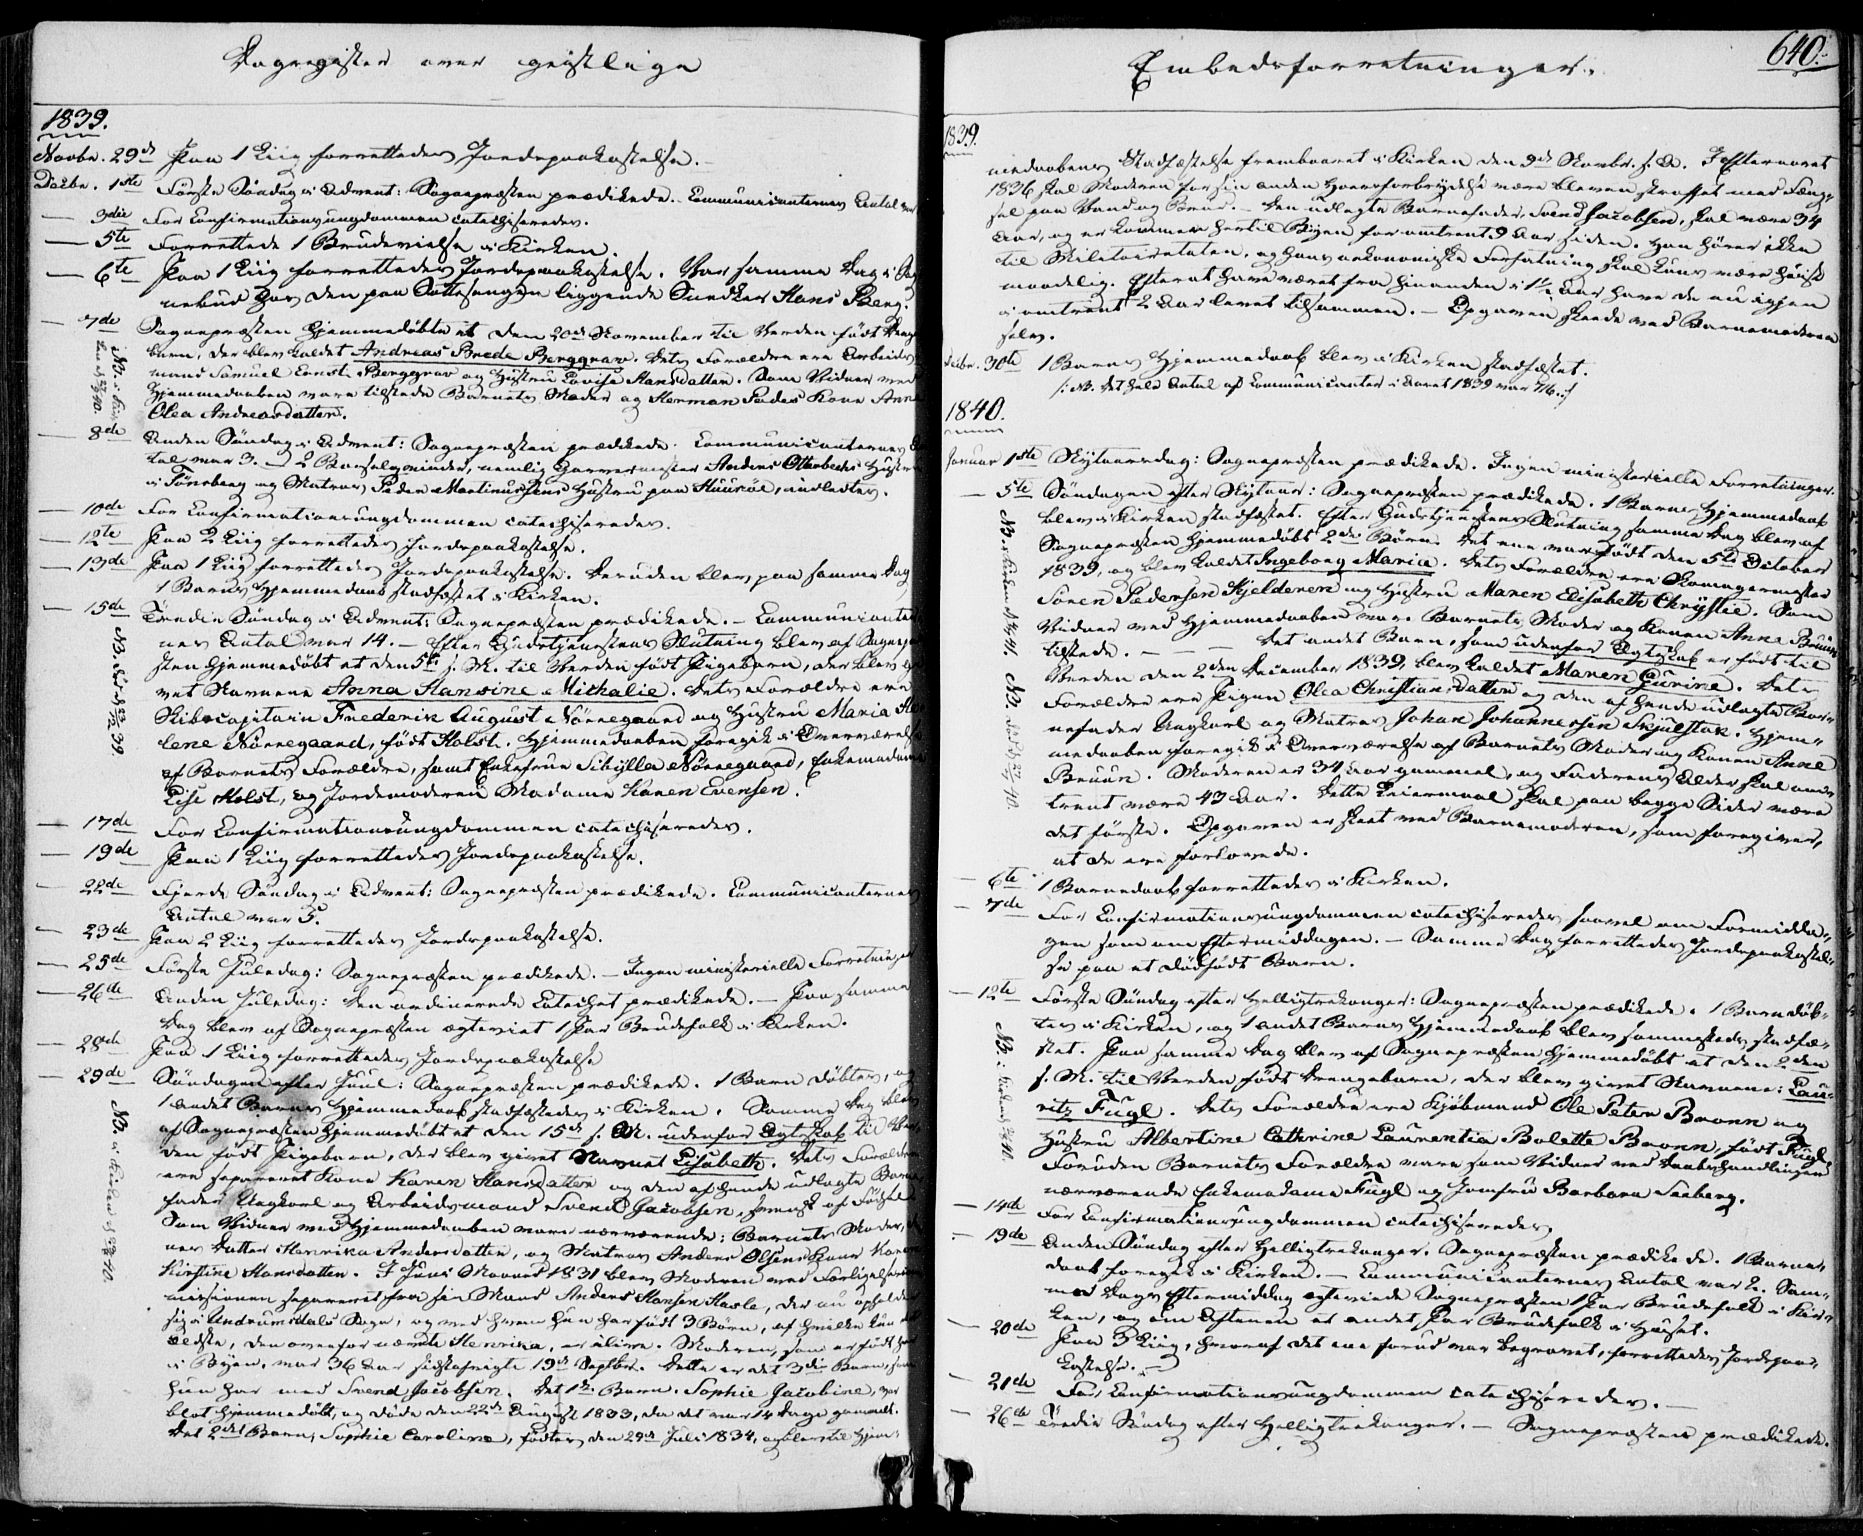 Dagregister over geistlige
1839.
Novbr. 29de Paa 1 Liig forrettedes Jordspaakastelse. –
Decbr. 1ste Første Søndag i Advent: Sognepræsten prædikede. Communicanternes Antal var
— 3die For Confirmationsungdommen catechiseredes.
— 5te Forrettede 1 Brudevielse i Kirken.
— 6te Paa 1 Liig forrettedes Jordspaakastelse. Var samme Dag i
den paa Sottesengen liggende Snedker Hans Berg.
— 7de Sognepræsten hjemmedøbte et den 20de November til Verden født Drenge-
barn, der blev kaldet Andreas Brede Berggrav. Dets Forældre ere Arbeids-
mand Samuel Ernst Berggrav og Hustru Lovise Hansdatter. Som Vidner ved
Hjemmedaaben vare tilstede Barnets Moder og Herman Peders Kone Anne
Olea Andreasdatter.
— 8de Anden Søndag i Advent: Sognepræsten prædikede. Communicanternes An-
tal var 3. – 2 Barselqvinder, nemlig Garvermester Anders Otterbechs Hustru
i Tönsberg og Matros Peder Martinussens Hustru paa Huusöe, indledtes.
— 10de For Confirmationsungdommen catechiseredes.
— 12te Paa 2 Liig forrettedes Jordspaakastelse.
— 13de Paa 1 Liig forrettedes Jordspaakastelse. Desuden blev paa samme Dag
1 Barns Hjemmedaab stadfæstet i Kirken.
— 15de Tredie Søndag i Advent: Sognepræsten prædikede. – Communicanter-
nes Antal var 14. – Efter Gudstjenestens Slutning blev af Sognepræ-
sten hjemmedøbt et den 5te f. M. til Verden født Pigebarn, der blev gi-
vet Navnene Anna Hansine Michalie. Dets Forældre ere
Skibscapitain Frederik August Nörregaard og Hustru Maria He-
lene Nörregaard, født Holst. Hjemmedaaben foregik i Overværelse
af Barnets Forældre, samt Enkefrue Sibÿlla Nörregaard, Enkemadame
Lise Holst, og Jordemoderen Madame Karen Evensen.
— 17de For Confirmationsungdommen catechiseredes.
— 19de Paa 1 Liig forrettedes Jordspaakastelse.
— 22de Fjerde Søndag i Advent: Sognepræsten prædikede. Communicanternes
Antal var 5.
— 23de Paa 2 Liig forrettedes Jordspaakastelse.
— 25de Første Juledag: Sognepræsten prædikede. – Ingen ministerielle Forretninger
— 26de Anden Juledag: Den ordinerede Catechet prædikede. – Paa samme
Dag blev af Sognepræsten ægteviet 1 Par Brudefolk i Kirken.
— 28de Paa 1 Liig forrettedes Jordspaakastelse
— 29de Søndagen efter Juul: Sognepræsten prædikede. 1 Barn døbtes, og
1 andet Barns Hjemmedaab stadfæstedes i Kirken. Samme Dag blev
af Sognepræsten hjemmedøbt et den 15de f. M. udenfor Ægteskab til Ver-
den født Pigebarn, der blev givet Navnet Elisabeth. Dets Forældre
ere separeret Kone Karen Hansdatter og den af hende udlagte Barne-
fader Ungkarl og Arbeidsmand Svend Jacobsen, svensk af Fødsel
Som Vidner med Hjemmedaaben vare nærværende: Barnets Moder,
Datter Henrika Andersdatter, og Matros Anders Olsens Kone Karen
Kirstine Hansdatter. I Juni Maaned 1831 blev Moderen ved Forligelsescom-
missionen separeret fra sin Mand Anders Hansen Hasle, der nu opholder
sig i Andebu Sogn, og med hvem hun har født 3 Børn, af hvilke kun
ældste, den ovenfor nævnte Henrika, er ilive. Moderen, som er født her
i Byen, var 36 Aar sidstafvigte 19de Septbr. Dette er det 3die Barn, som
hun har med Svend Jacobsen. Det 1ste Barn, Sophie Jacobine, var
blot hjemmedøbt, og døde den 22de August 1833, da det var 14 Dage gammelt.
Det 2det Barn, Sophie Caroline, fødtes den 29de Juli 1834, og blev til Hjem-
Embedsforretninger.
640.
1839.
medaabens Stadfæstelse frembaaret i Kirken den 9de Novbr. s. A. I Efteraaret
1836 skal Moderen for sin anden Hoersforbrydelse være bleven straffet med Fæng-
sel paa Vand og Brød. – Den udlagte Barnefader, Svend Jacobsen, skal være 34
Aar, og er kommen hertil Byen for omtrent 9 Aar siden. Han hører ikke
til Militairetaten, og hans oekonomiske Forfatning skal kuns være høist
maadelig. Efterat have været fra hinanden i 1½ Aar have de nu igjen
i omtrent 2 Aar levet tilsammen. – Opgaven skeede ved Barnemoderen
selv.
Decbr. 30te 1 Barns Hjemmedaab blev i Kirken stadfæstet.
/: NB. Det hele Antal af Communicanter i Aaret 1839 var 716. :/
1840.
Januar 1ste Nytaarsdag: Sognepræsten prædikede. Ingen ministerielle Forretninger.
— 5te Søndagen efter Nytaar: Sognepræsten prædikede. 1 Barns Hjemmedaab
blev i Kirken stadfæstet. Efter Gudstjenestens Slutning samme Dag blev af
Sognepræsten hjemmedøbt 2de Børn. Det ene var født den 5te October
1839, og blev kaldet Ingeborg Maria. Dets Forældre ere Skomagermester
Sören Pedersen Kjelderen og Hustru Maren Elisabeth Chrÿstie. Som
Vidner ved Hjemmedaaben var Barnets Moder og Konen Anne Bruun
tilstede. – – – Det andet Barn, som udenfor Ægteskab er født til
Verden den 2den December 1839, blev kaldet Maren Gurine. Dets
Forældre ere Pigen Olea Christiansdatter og den af hende udlagte Bar-
nefader Ungkarl og Matros Johan Johannessen Skjulstok. Hjem-
medaaben foregik i Overværelse af Barnets Moder og Konen Anne
Bruun. Moderen er 34 Aar gammel, og Faderens Alder skal om-
trent være 43 Aar. Dette Leiermaal skal paa begge Sider være
det første. Opgaven er skeet ved Barnemoderen, som foregiver,
at de ere forlovede.
— 6te 1 Barnedaab forrettedes i Kirken.
— 7de For Confirmationsungdommen catechiseredes saavel om Formidda-
gen som om Eftermiddagen. – Samme Dag forrettedes Jordspaakastel-
se paa et dødfødt Barn.
— 12te Første Søndag efter Helligtrekonger: Sognepræsten prædikede. 1 Barn døb-
tes i Kirken, og 1 andet Barns Hjemmedaab blev sammesteds stadfæ-
stet. Paa samme Dag blev af Sognepræsten hjemmedøbt et den 2den
f. M. til Verden født Drengebarn, der blev givet Navnene: Lau-
ritz Fugl. Dets Forældre ere Kjøbmand Ole Peter Bronn og
Hustru Albertine Cathrine Laurentia Bolette Bronn, født Fugl
Foruden Barnets Forældre vare som Vidner ved Daabshandlingen
nærværende Enkemadame Fugl og Jomfru Barbara Seeberg.
— 14de For Confirmationsungdommen catechiseredes
— 19de Anden Søndag efter Helligtrekonger. Sognepræsten prædikede. 1 Barne-
daab foregik i Kirken. – Communicanternes Antal var 2. Sam-
me Dags Eftermiddag ægteviede Sognepræsten 1 Par Brudefolk i Kir-
ken, og om Aftenen et andet Par Brudefolk i Huset.
— 20de Paa 3 Liig, hvoraf det ene forud var begravet, forrettedes Jordspaa-
kastelse. –
— 21de For Confirmationsungdommen catechiseredes. –
— 26de Tredie Søndag efter Helligtrekonger. – Sognepræsten prædikede.